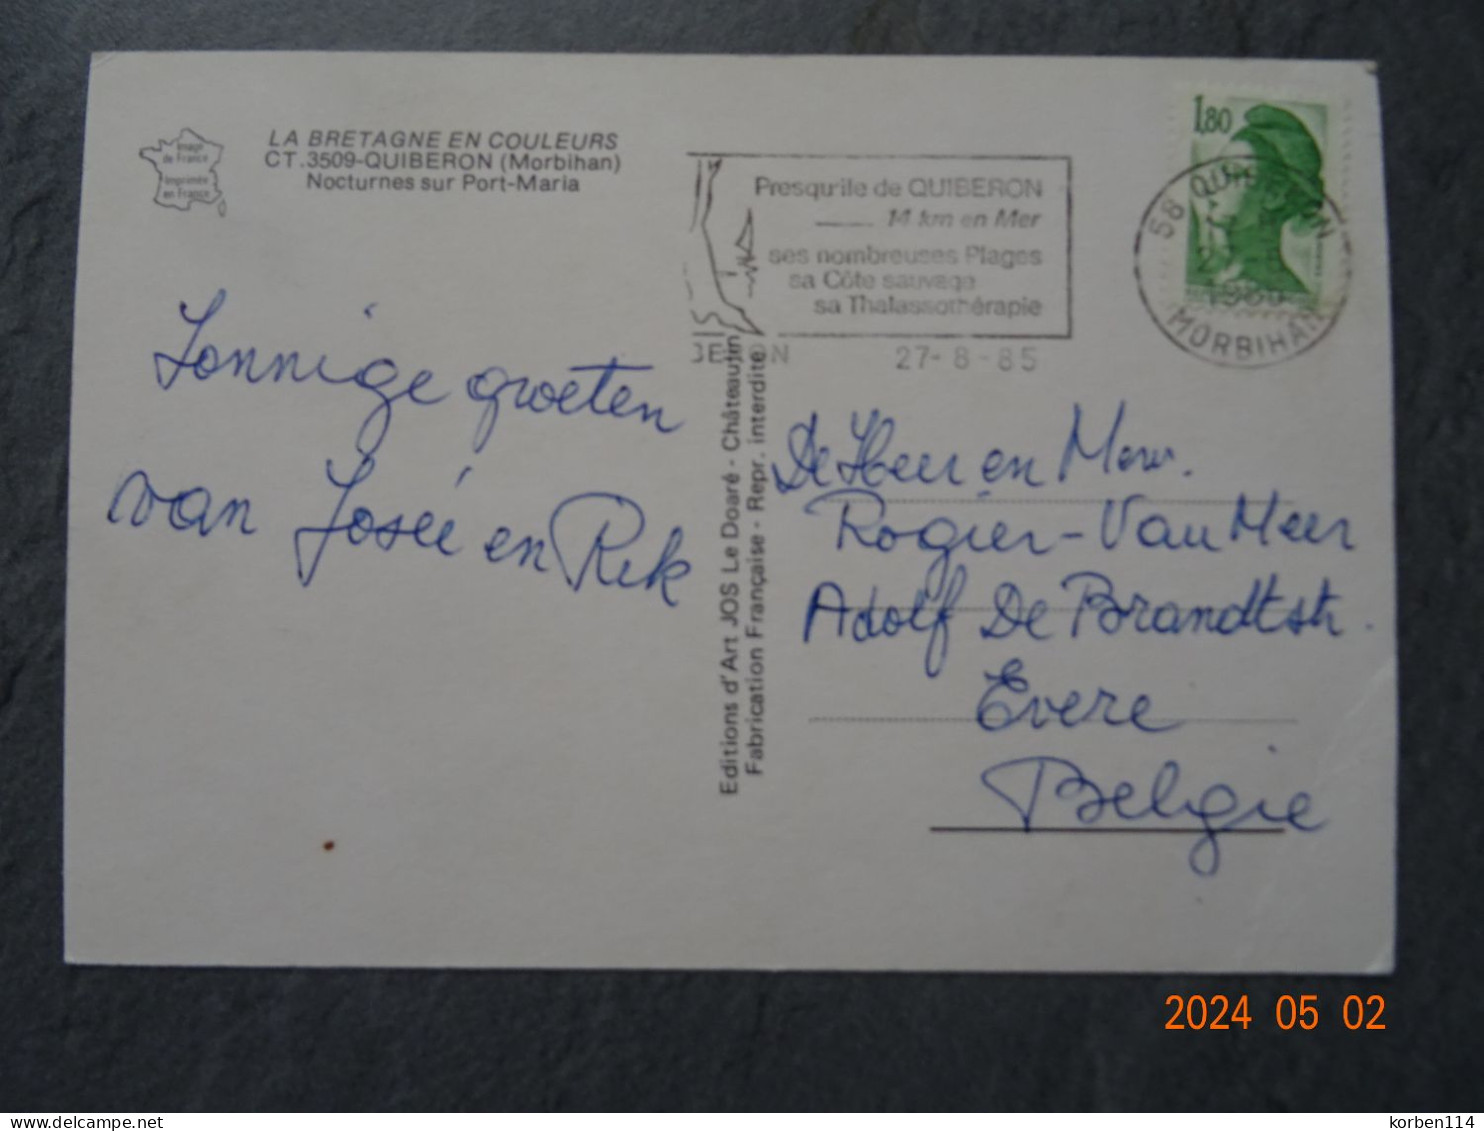 Image
de France
Imprimée
en France
LA BRETAGNE EN COULEURS
CT.3509-QUIBERON (Morbihan)
Nocturnes sur Port-Maria
Presqu'ile de QUIBERON
14 km en Mer
ses nombreuses Plages
sa Côte sauvage
sa Thalassothérapie
27-8-85
1,80
58 QUIBERON
MORBIHAN
Zonnige groeten
van Josée en Rik
Editions d'Art JOS Le Doaré - Châteaulin
Fabrication Française - Repr. interdite
De Heer en Mevr.
Rogier-Van Meer
Adolf De Brandtstr.
Evere
Belgie
2024 05 02
korben114